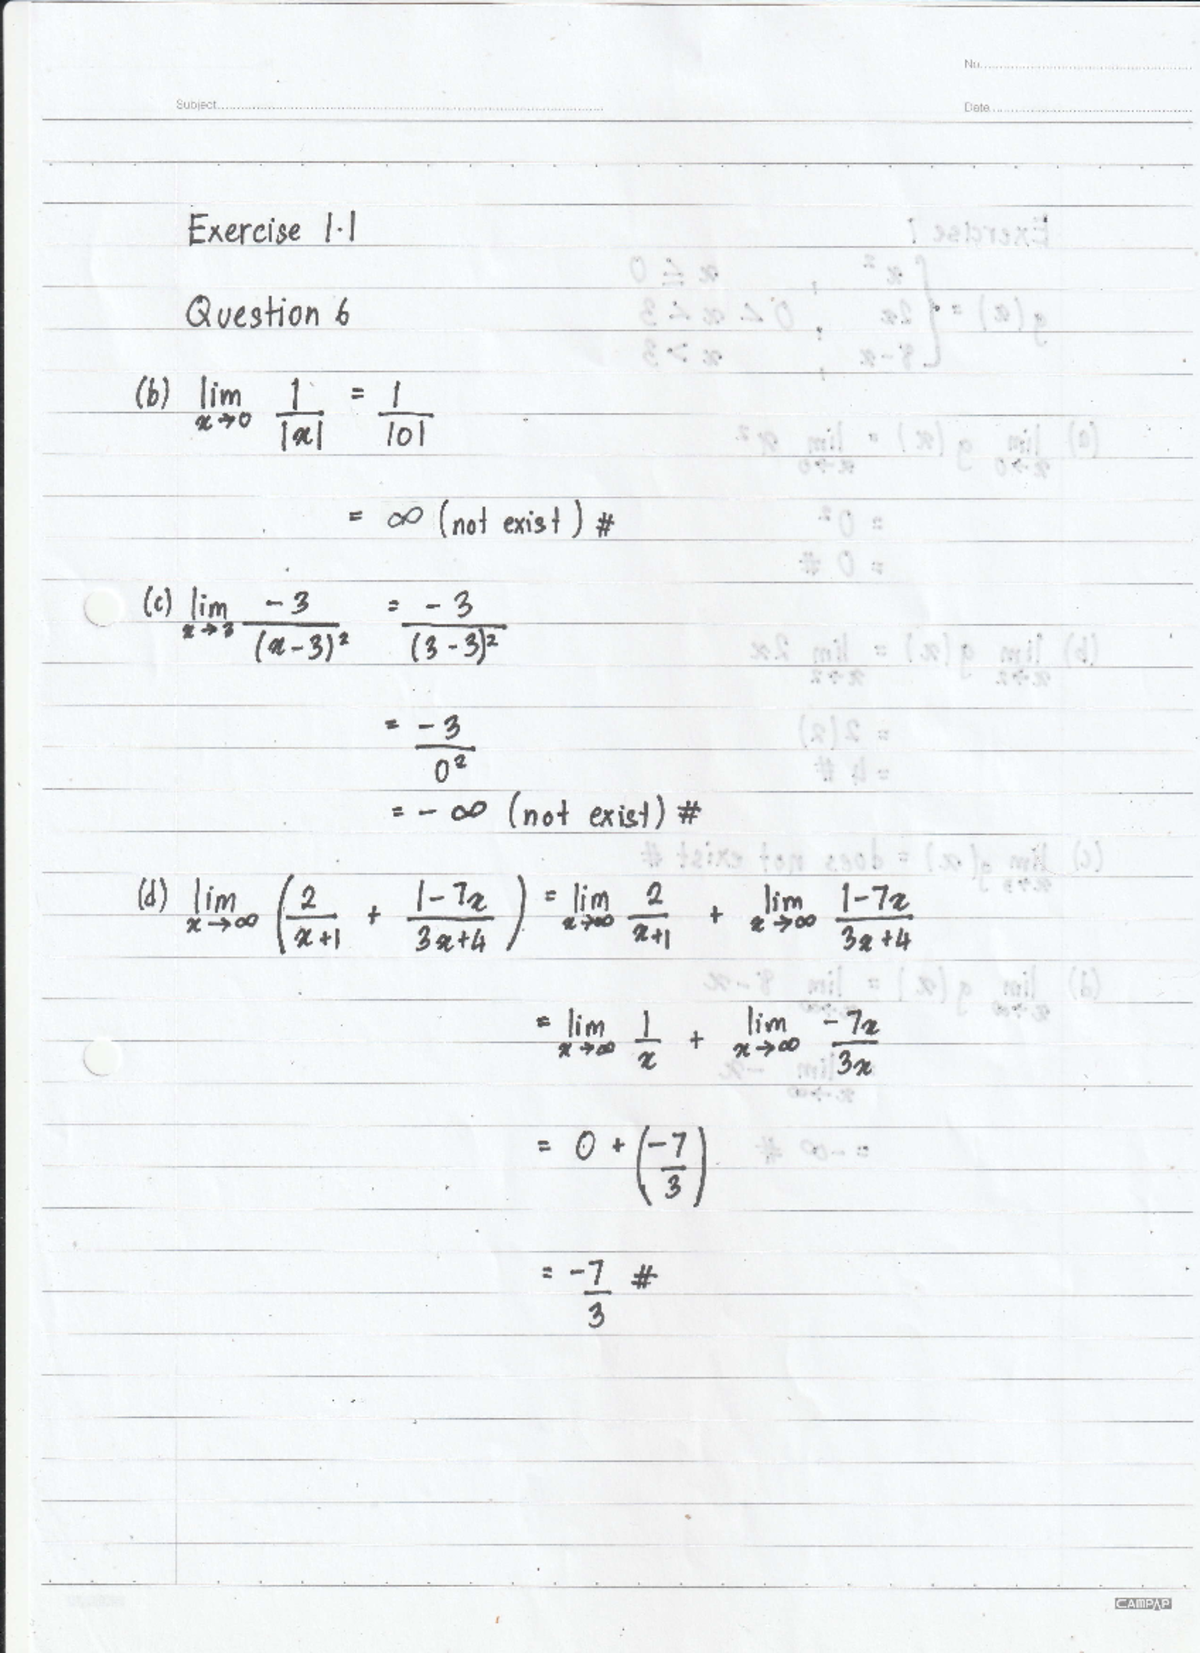 No.
Subject
Date
Exercise 1.1
Question 6
(b) lim x→0 1/|x| = 1/|0|
= ∞ (not exist) #
(c) lim x→3 -3/(x-3)² = -3/(3-3)²
= -3/0²
= -∞ (not exist) #
(d) lim x→∞ (2/(x+1) + (1-7x)/(3x+4)) = lim x→∞ 2/(x+1) + lim x→∞ (1-7x)/(3x+4)
= lim x→∞ 1/x + lim x→∞ -7x/3x
= 0 + (-7/3)
= -7/3 #
CAMPAP